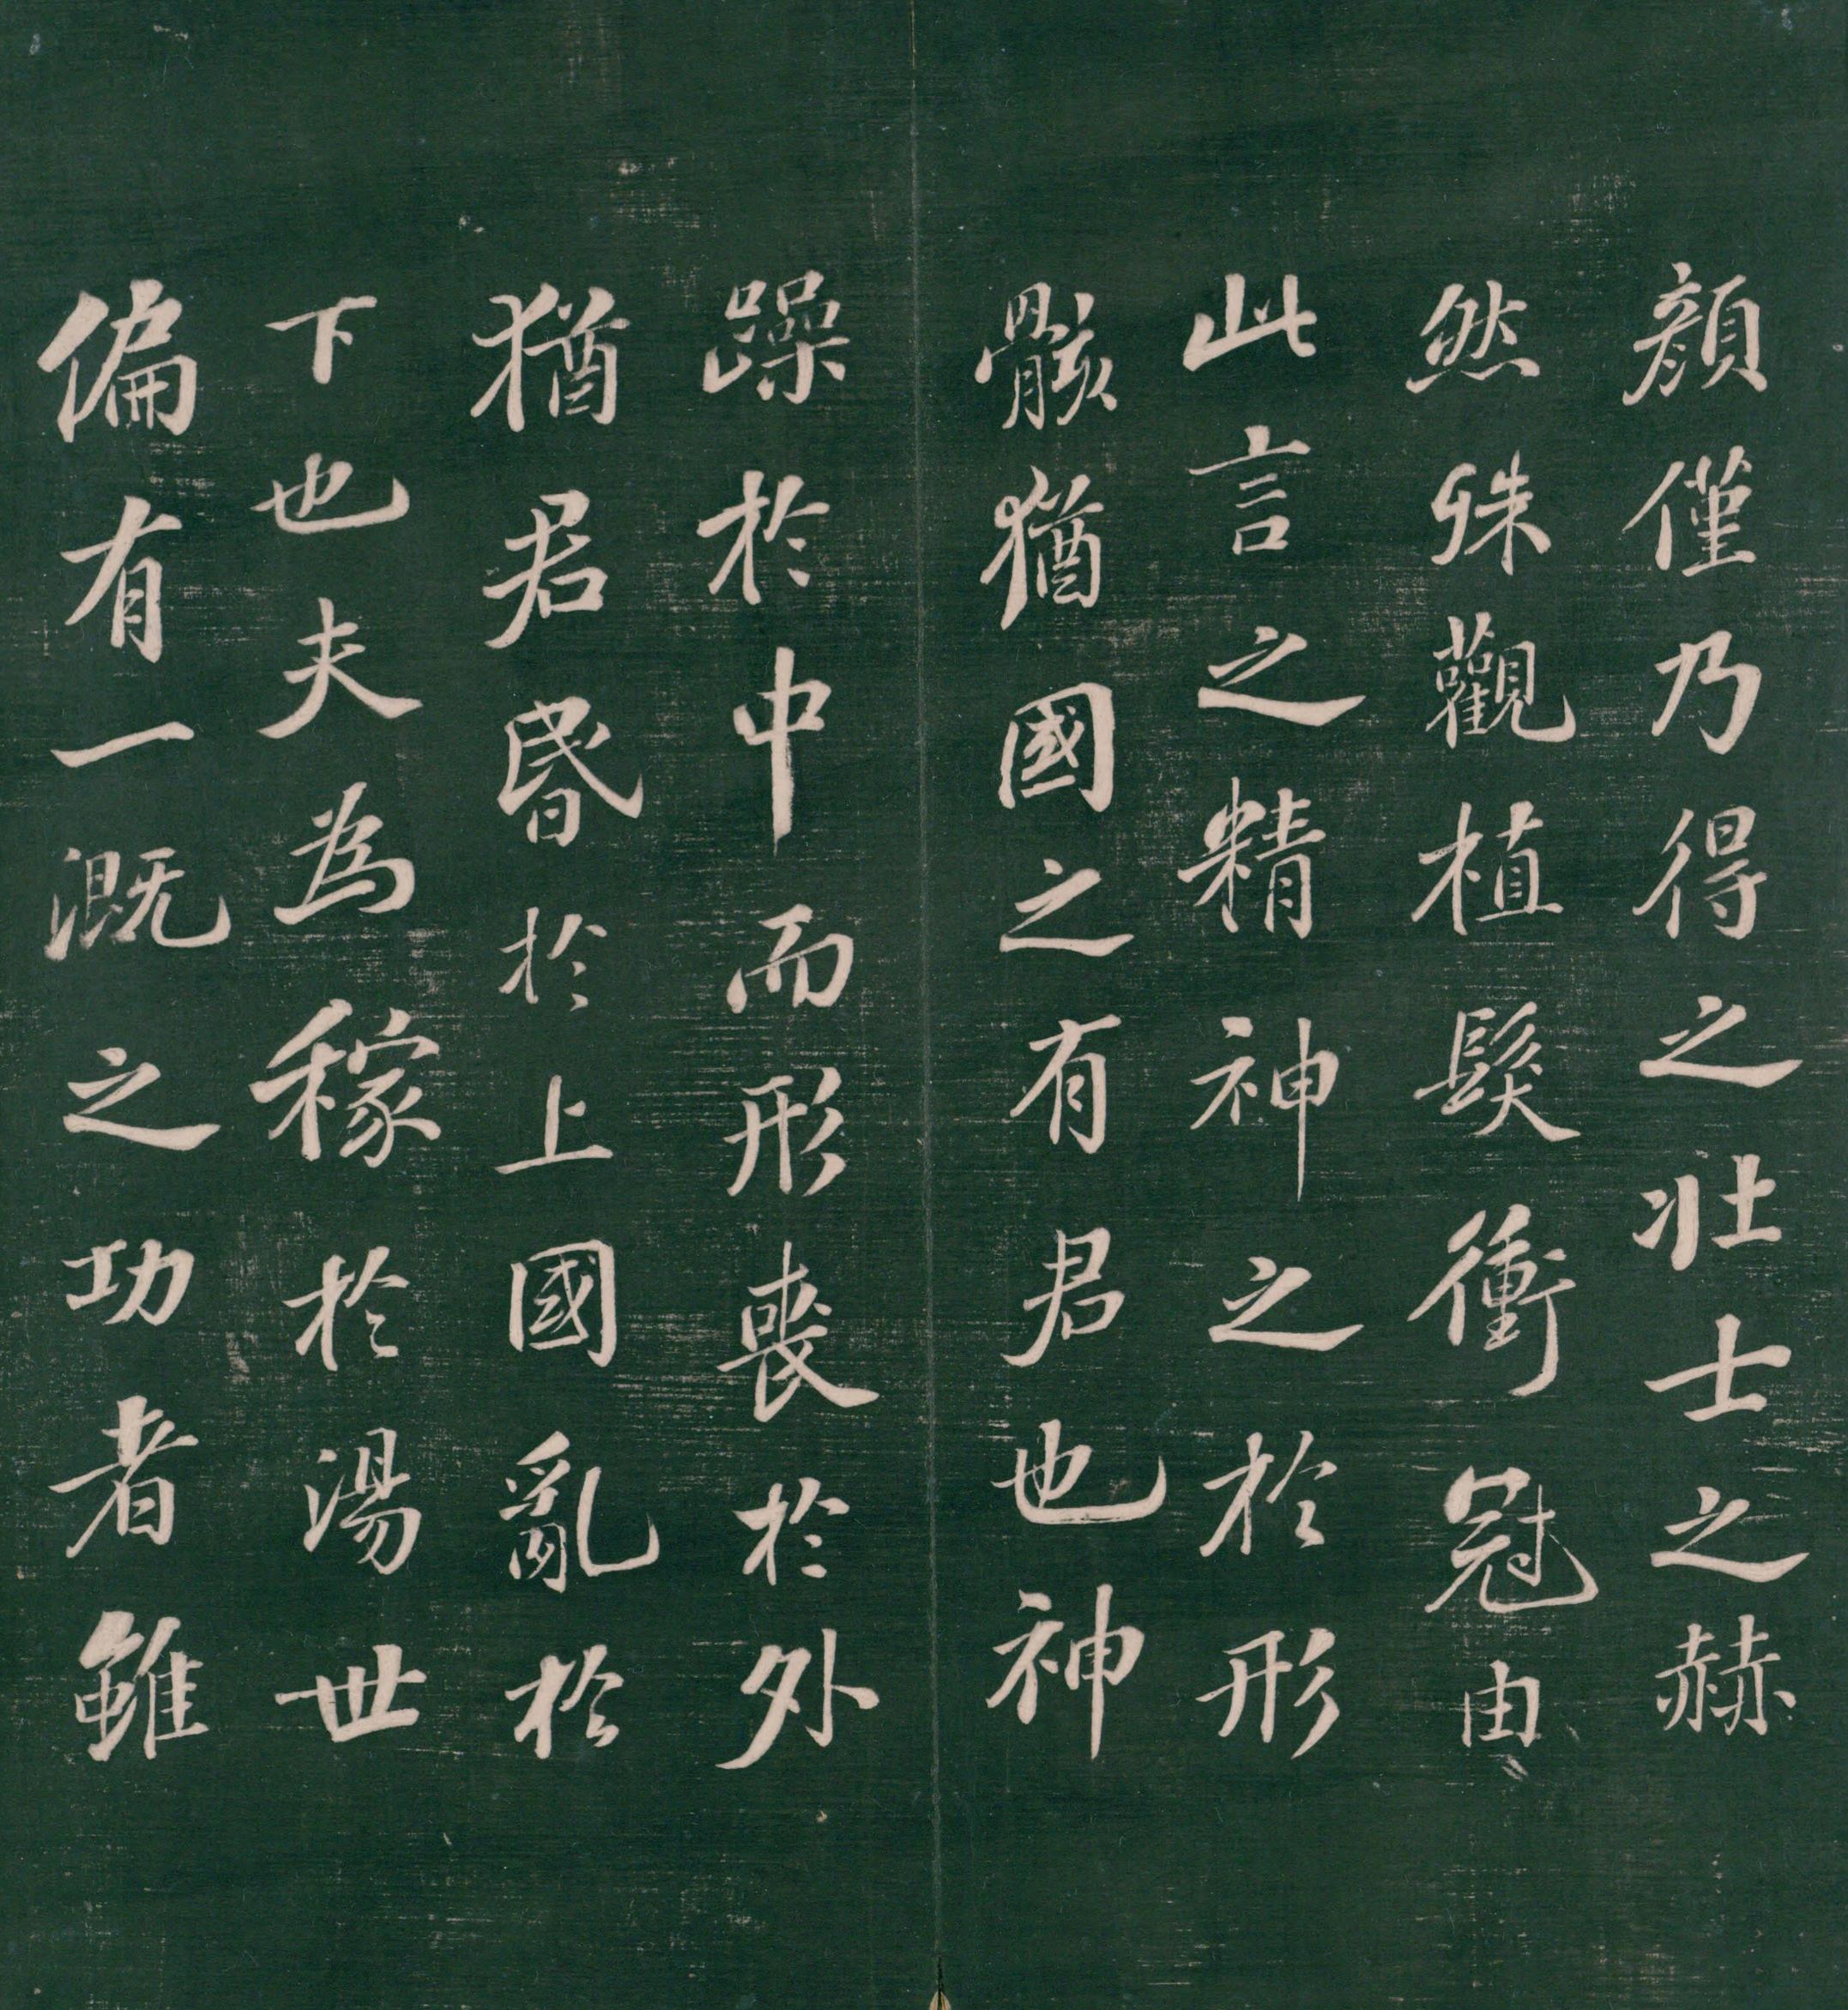 顔僅乃得之壯士之赫
然殊觀植髮衝冠由
此言之精神之於形
骸猶國之有君也神
躁於中而形喪於外
猶君昏於上國亂於
下也夫為稼於湯世
偏有一溉之功者雖